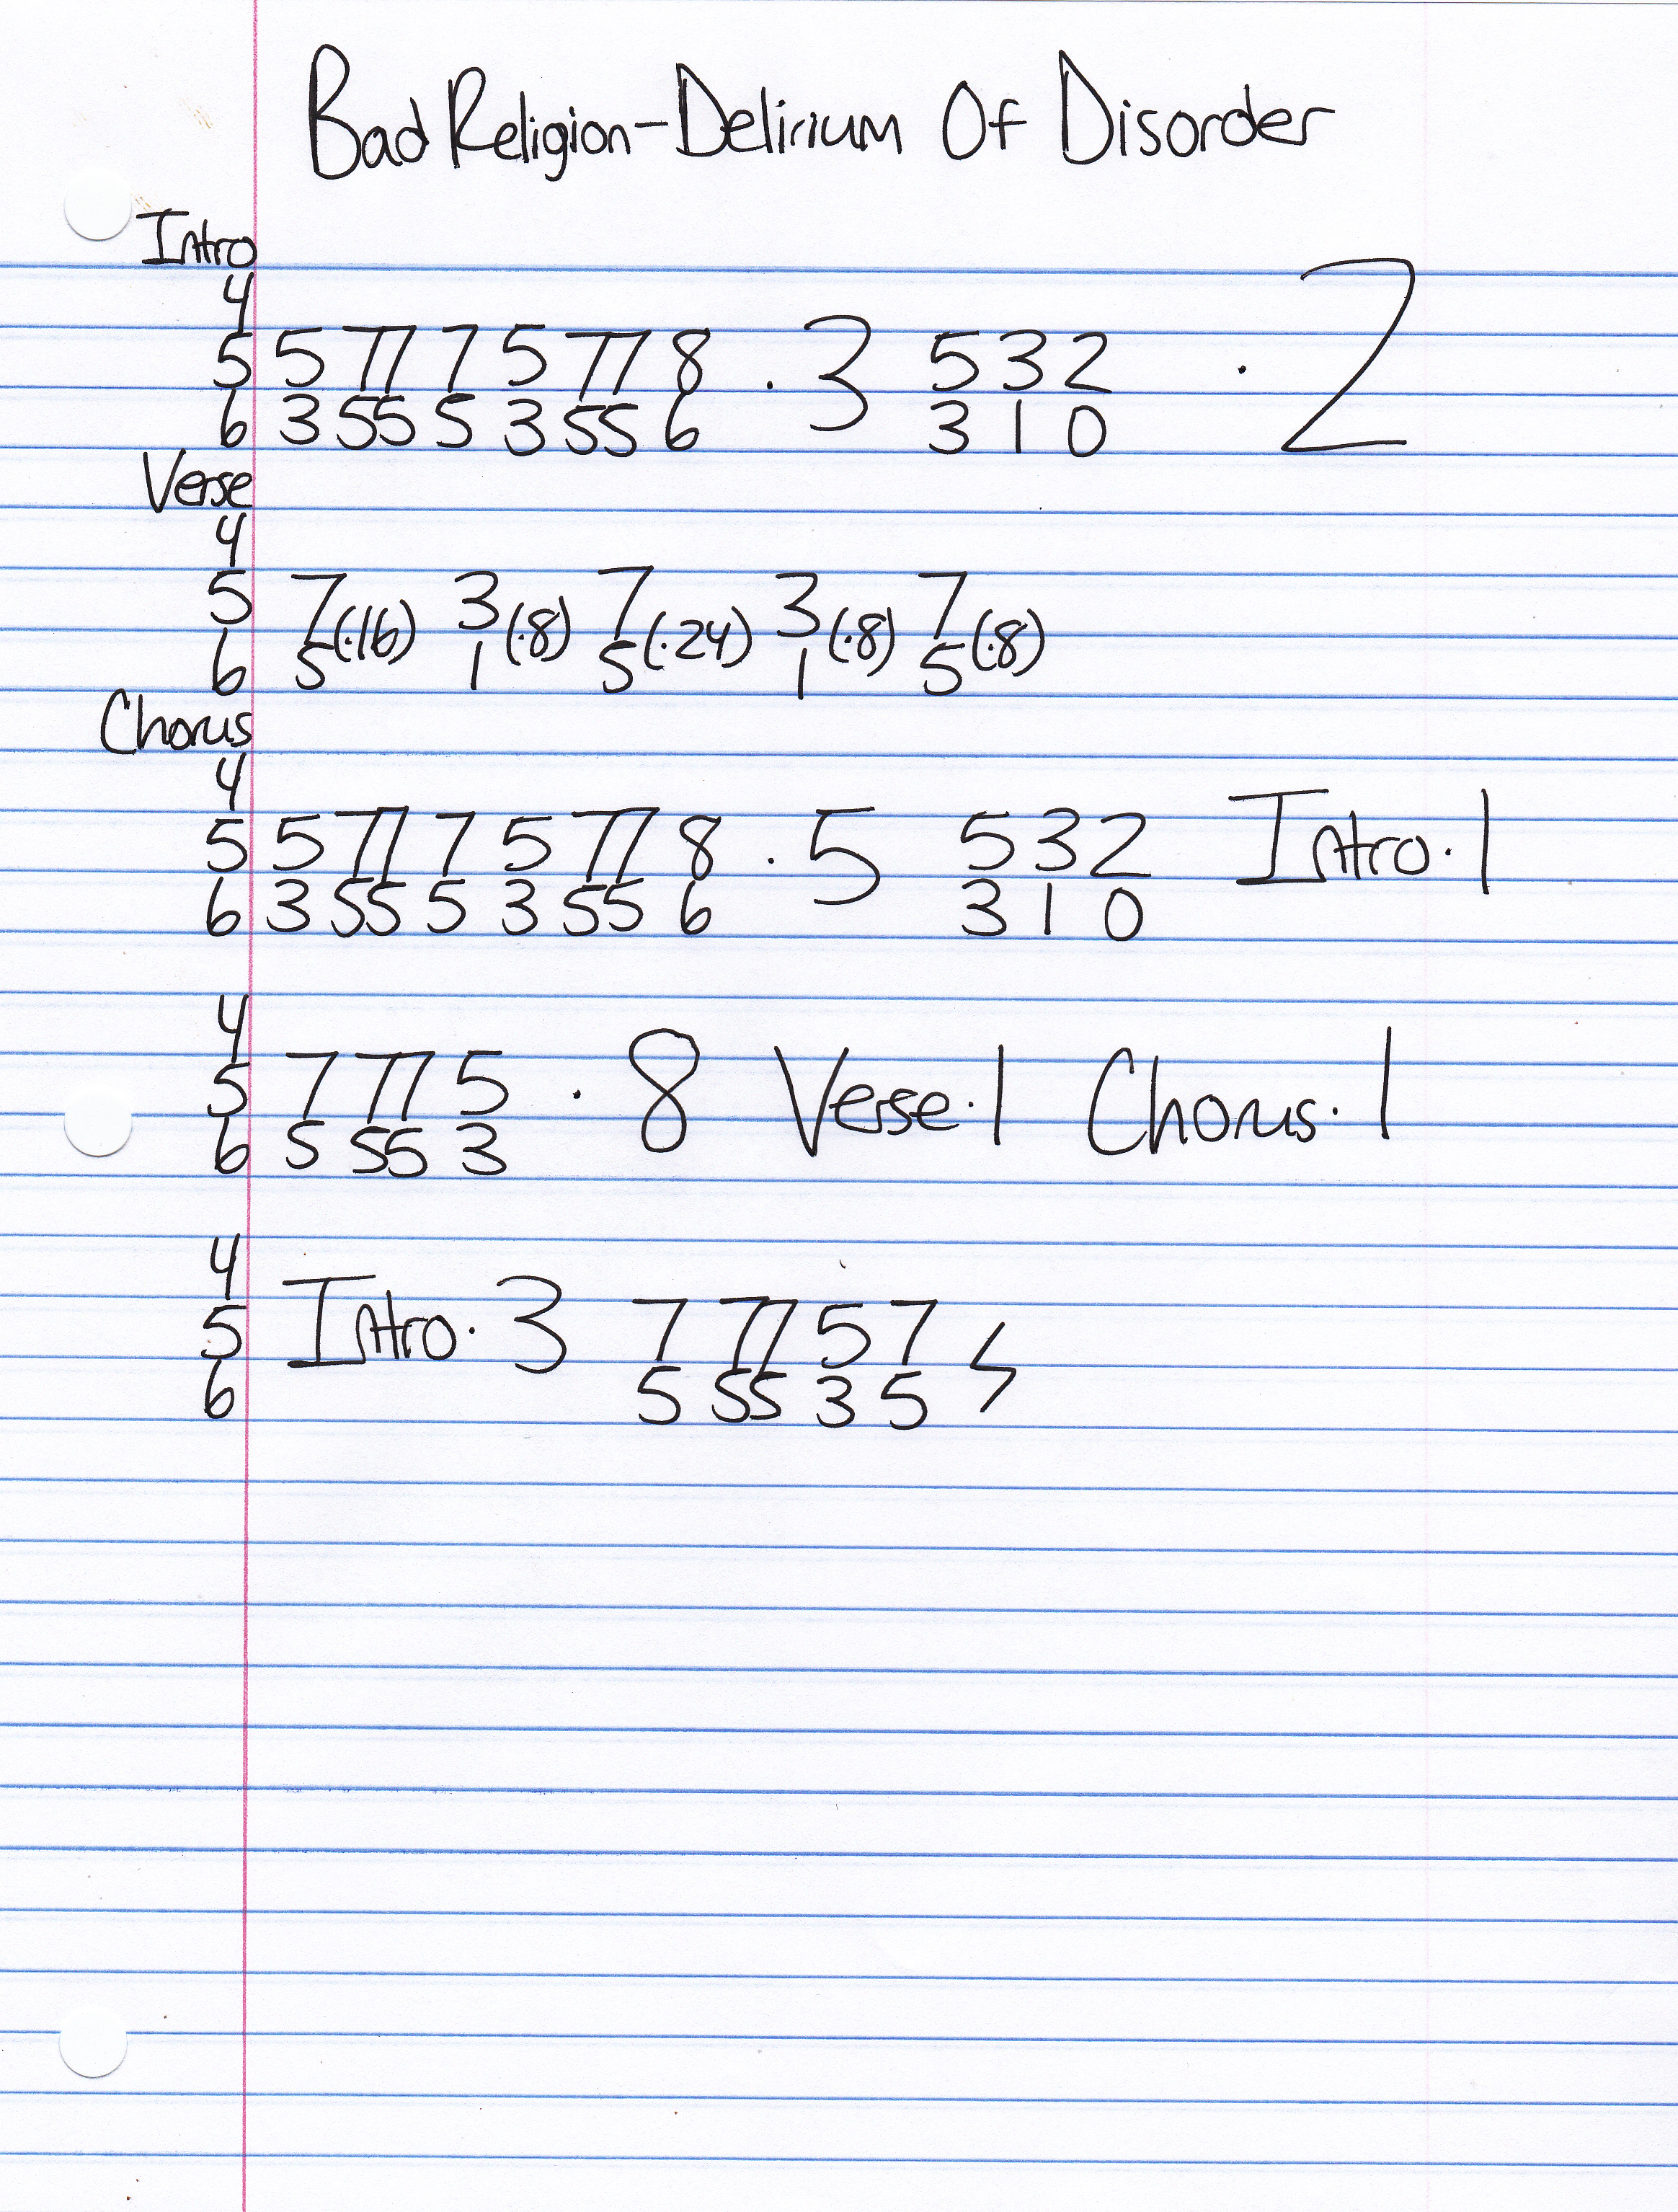 Bad Religion-Delirium Of Disorder
Intro
4
5 5 77 7 5 77 8 · 3 5 3 2 · 2
6 3 55 5 3 55 6 3 1 0
Verse
4
5 7(·16) 3(·8) 7(·24) 3(·8) 7(·8)
6 5 1 5 1 5
Chorus
4
5 5 77 7 5 77 8 · 5 5 3 2 Intro·1
6 3 55 5 3 55 6 3 1 0
4
5 7 77 5 · 8 Verse·1 Chorus·1
6 5 55 3
4
5 Intro·3 7 77 5 7
6 5 55 3 5